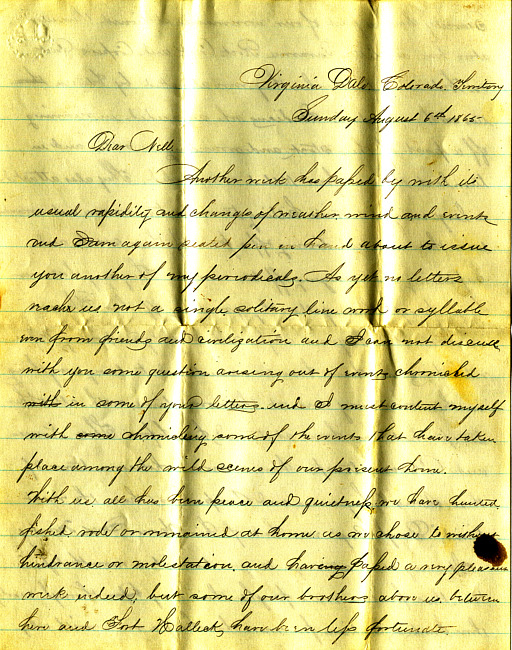 Virginia Dale Colorado Territory
Sunday August 6th 1865
Dear Nell
Another week has passed by with its
usual rapidity and changes of weather mind and events
and I am again seated pen in hand about to issue
you another of my periodicals. As yet no letters
reache us not a single solitary line word or syllable
even from friends and civilization and I can not discuss
with you some question arising out of events chronicled
with in some of your letters. and I must content myself
with some chronicling some of the events that have taken
place among the wild scenes of our present home.
With us all has been peace and quietness, we have hunted
fished rode or remained at home as we chose to without
hindrance or molestation, and having passed a very pleasant
week indeed, but some of our brothers above us between
here and Fort Halleck, have been less fortunate.